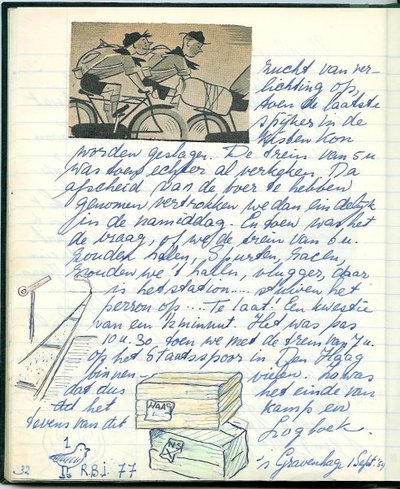 zucht van ver-
lichting op,
toen de laatste
spijker in de
kisten kon
worden geslagen. De trein van 5 u
was toen echter al verkeken. Na
afscheid van de boer te hebben
genomen vertrokken we dan eindelijk
in de namiddag. En toen was het
de vraag, of we de trein van 6 u.
zouden halen. Spurten, racen,
zouden we 't halen, vlugger, daar
is het station..... stuiven het
perron op.... Te laat! Een kwestie
van een ½ minuut. Het was pas
10 u. 30, toen we met de trein van 7 u.
op het Staatsspoor in Den Haag
binnen vielen. Zo was
dat dus het einde van
dit het kamp en
tevens van dit Logboek.
's Gravenhage, 1 Sept.
HAAG
1
R.B.J. 77
32